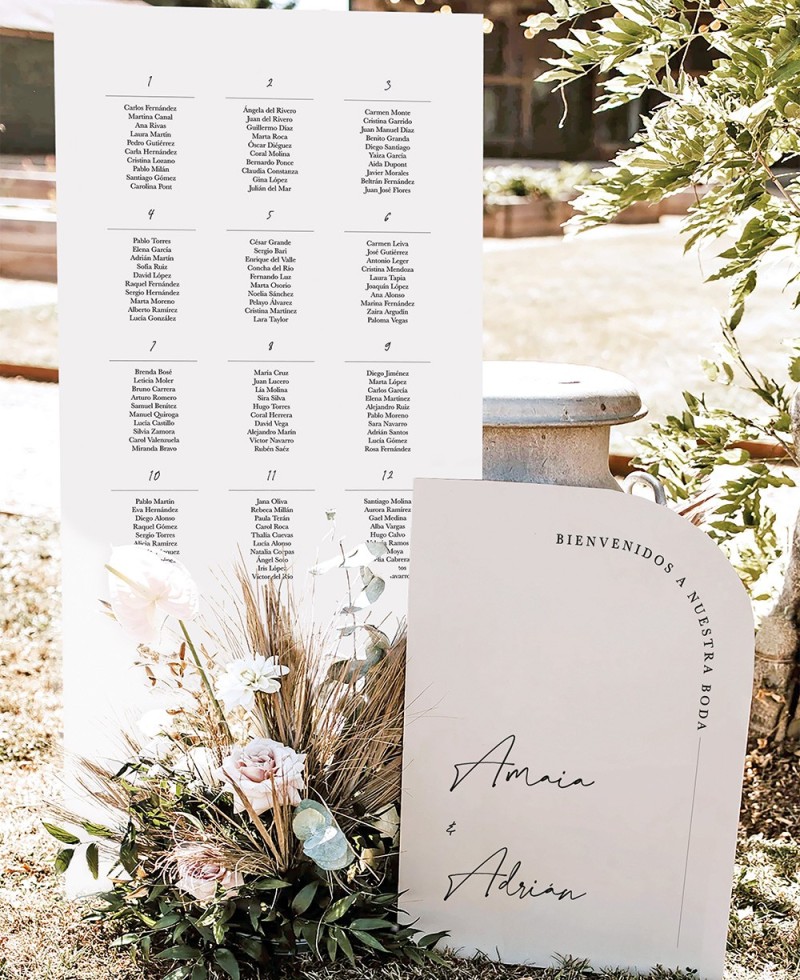 1
Carlos Fernández
Martina Canal
Ana Rivas
Laura Martín
Pedro Gutiérrez
Carla Hernández
Cristina Lozano
Pablo Milán
Santiago Gómez
Carolina Font
2
Ángela del Rivero
Juan del Rivero
Guillermo Díaz
Marta Roca
Óscar Diéguez
Coral Molina
Bernardo Ponce
Claudia Constanza
Gina López
Julián del Mar
3
Carmen Monte
Cristina Garrido
Juan Manuel Díaz
Benito Granda
Diego Santiago
Yaiza García
Aida Dupont
Javier Morales
Beltrán Fernández
Juan José Flores
4
Pablo Torres
Elena García
Adrián Martín
Sofía Ruiz
David López
Raquel Fernández
Sergio Hernández
Marta Moreno
Alberto Ramírez
Lucía González
5
César Grande
Sergio Bari
Enrique del Valle
Concha del Río
Fernando Luz
Marta Osorio
Noelia Sánchez
Pelayo Álvarez
Cristina Martínez
Lara Taylor
6
Carmen Leiva
José Gutiérrez
Antonio Leger
Cristina Mendoza
Laura Tapia
Joaquín López
Ana Alonso
Marina Fernández
Zaira Argudín
Paloma Vegas
7
Brenda Bosé
Leticia Moler
Bruno Carrera
Arturo Romero
Samuel Benítez
Manuel Quiroga
Lucía Castillo
Silvia Zamora
Carol Valenzuela
Miranda Bravo
8
María Cruz
Juan Lucero
Lía Molina
Sira Silva
Hugo Torres
Coral Herrera
David Vega
Alejandro Marín
Víctor Navarro
Rubén Saéz
9
Diego Jiménez
Marta López
Carlos García
Elena Martínez
Alejandro Ruiz
Pablo Moreno
Sara Navarro
Adrián Santos
Lucía Gómez
Rosa Fernández
10
Pablo Martín
Eva Hernández
Diego Alonso
Raquel Gómez
Sergio Torres
Alicia Ramírez
11
Jana Oliva
Rebeca Millán
Paula Terán
Carol Roca
Thalía Cuevas
Lucía Alonso
Natalia Corpas
Ángel Soto
Iris López
Víctor del Río
12
Santiago Molina
Aurora Ramírez
Gael Medina
Alba Vargas
Hugo Calvo
Ramos
Moya
Cabrera
BIENVENIDOS A NUESTRA BODA
Amaia
&
Adrián